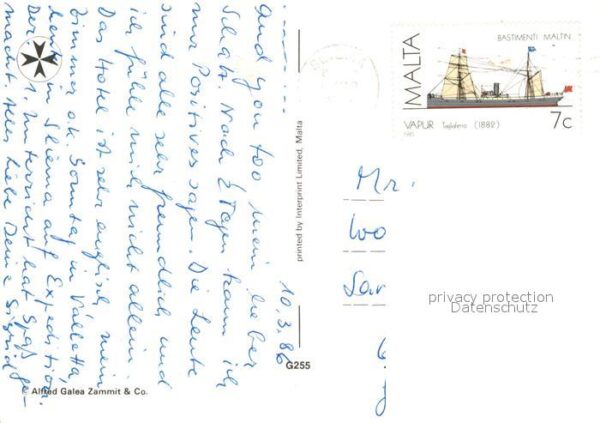 10.3.86
And you too mein lieber
Schatz. Nach 2 Tagen kann ich
nur Positives sagen. Die Leute
sind alle sehr freundlich und
ich fühle mich nicht allein.
Das Hotel ist sehr englisch, mein
Zimmer ok. Sonntag in Valletta,
heute in Sliema auf Expedition.
Der 1. Unterricht hat Spaß ge-
macht. Alles Liebe Deine Sigrid
Alfred Galea Zammit & Co.
printed by Interprint Limited, Malta
G255
MALTA
BASTIMENTI MALTIN
VAPUR Tagliaferro (1882)
7c
1985
Mr.
Wo
Sar
privacy protection
Datenschutz